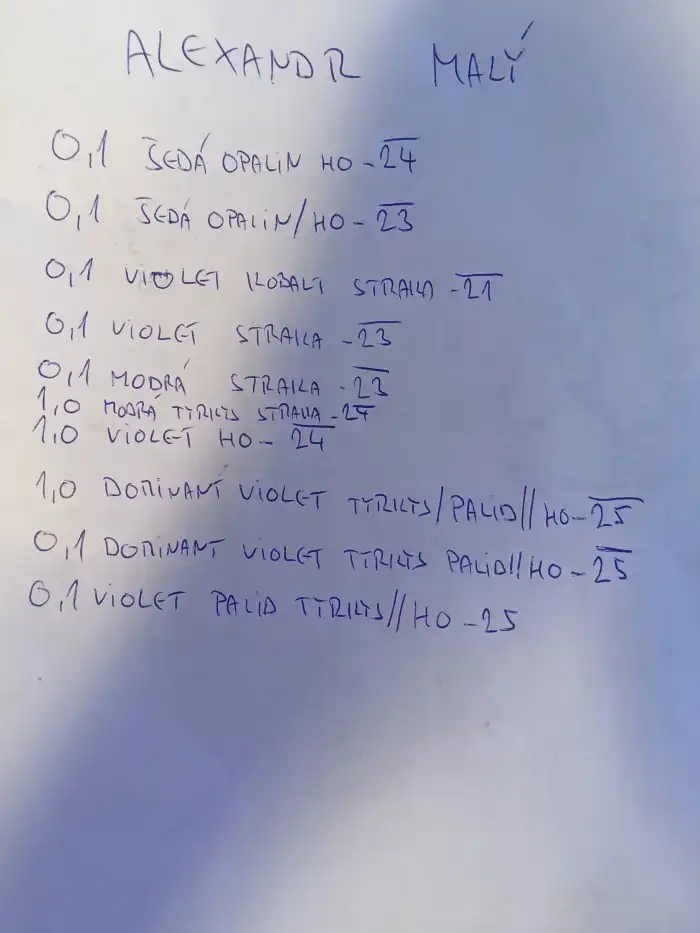 ALEXANDR MALÝ
0,1 ŠEDÁ OPALIN HO - 24
0,1 ŠEDÁ OPALIN/HO - 23
0,1 VIOLET KOBALT STRAKA - 21
0,1 VIOLET STRAKA - 23
0,1 MODRÁ STRAKA - 23
1,0 MODRÁ TYRKYS STRAKA - 24
1,0 VIOLET HO - 24
1,0 DOMINANT VIOLET TYRKYS/PALID//HO - 25
0,1 DOMINANT VIOLET TYRKYS PALID//HO - 25
0,1 VIOLET PALID TYRKYS//HO - 25